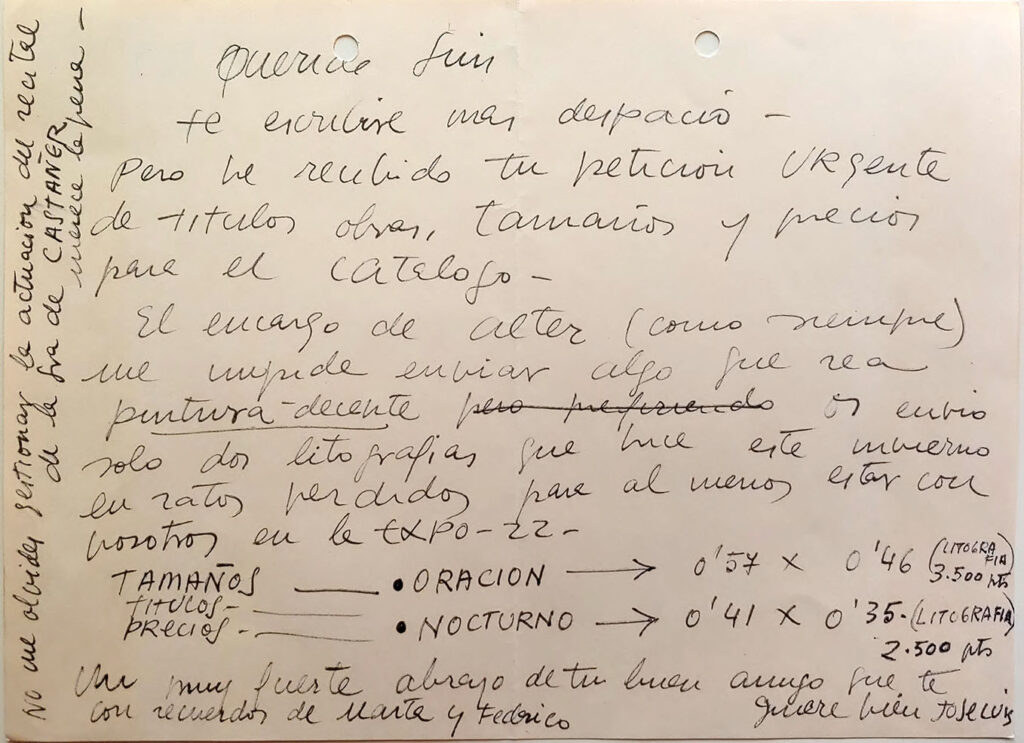 Querido Luis
te escribire mas despacio -
Pero he recibido tu peticion URgente
de titulos obras, tamaños y precios
para el catalogo -
El encargo de alter (como siempre)
me impide enviar algo que sea
pintura-decente pero prefiriendo os envio
solo dos litografias que hice este invierno
en ratos perdidos para al menos estar con
vosotros en la EXPO-22-
TAMAÑOS • ORACION → 0'57 x 0'46 (LITOGRAFIA) 3.500 pts
TITULOS -
PRECIOS - • NOCTURNO → 0'41 x 0'35. (LITOGRAFIA) 2.500 pts
Un muy fuerte abrazo de tu buen amigo que te
quiere bien JOSE LUIS
con recuerdos de Marta y Federico
No me olvides gestionar la actuacion del recital
de la Sra de CASTAÑER
merece la pena -